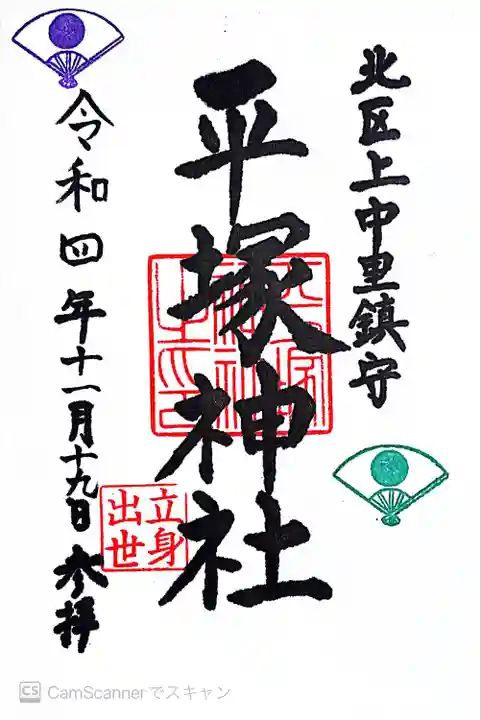 北区上中里鎮守
平塚神社
立身
出世
令和四年十一月十九日参拝
CS CamScannerでスキャン